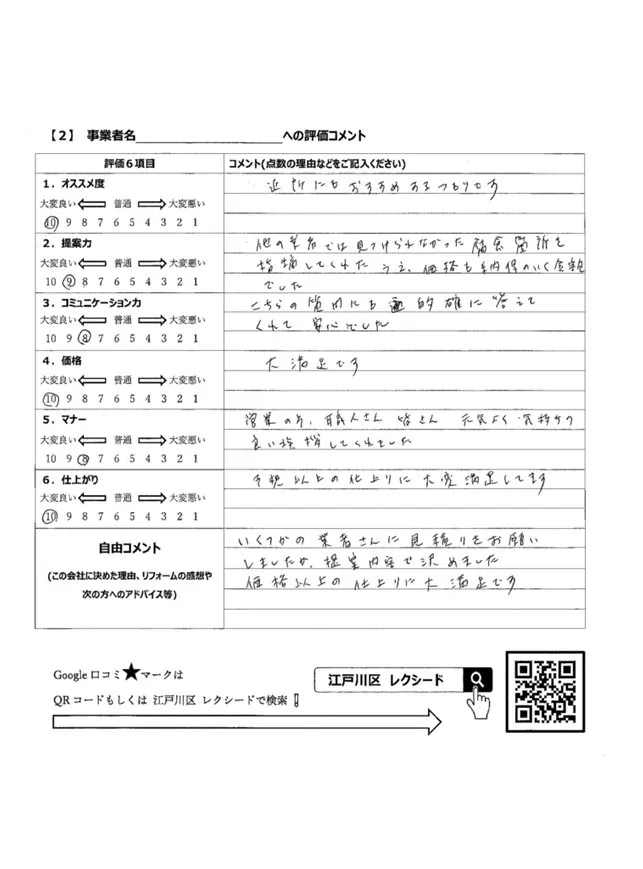 【2】 事業者名 への評価コメント
評価6項目 コメント(点数の理由などをご記入ください)
1.オススメ度
大変良い 普通 大変悪い
10 9 8 7 6 5 4 3 2 1
近所にもおすすめするつもりです
2.提案力
大変良い 普通 大変悪い
10 9 8 7 6 5 4 3 2 1
他の業者では見つけられなかった腐食箇所を
指摘してくれたうえ、価格も納得のいく金額
でした
3.コミュニケーション力
大変良い 普通 大変悪い
10 9 8 7 6 5 4 3 2 1
こちらの質問にも的確に答えて
くれて安心でした
4.価格
大変良い 普通 大変悪い
10 9 8 7 6 5 4 3 2 1
大満足です
5.マナー
大変良い 普通 大変悪い
10 9 8 7 6 5 4 3 2 1
営業の方、職人さん皆さん 元気よく気持ちの
良い挨拶してくれました
6.仕上がり
大変良い 普通 大変悪い
10 9 8 7 6 5 4 3 2 1
予想以上の仕上りに大変満足してます
自由コメント
(この会社に決めた理由、リフォームの感想や
次の方へのアドバイス等)
いくつかの業者さんに見積りをお願い
しましたが、提案内容で決めました
価格以上の仕上りに大満足です
Google 口コミ★マークは
QRコードもしくは 江戸川区 レクシードで検索!
江戸川区 レクシード